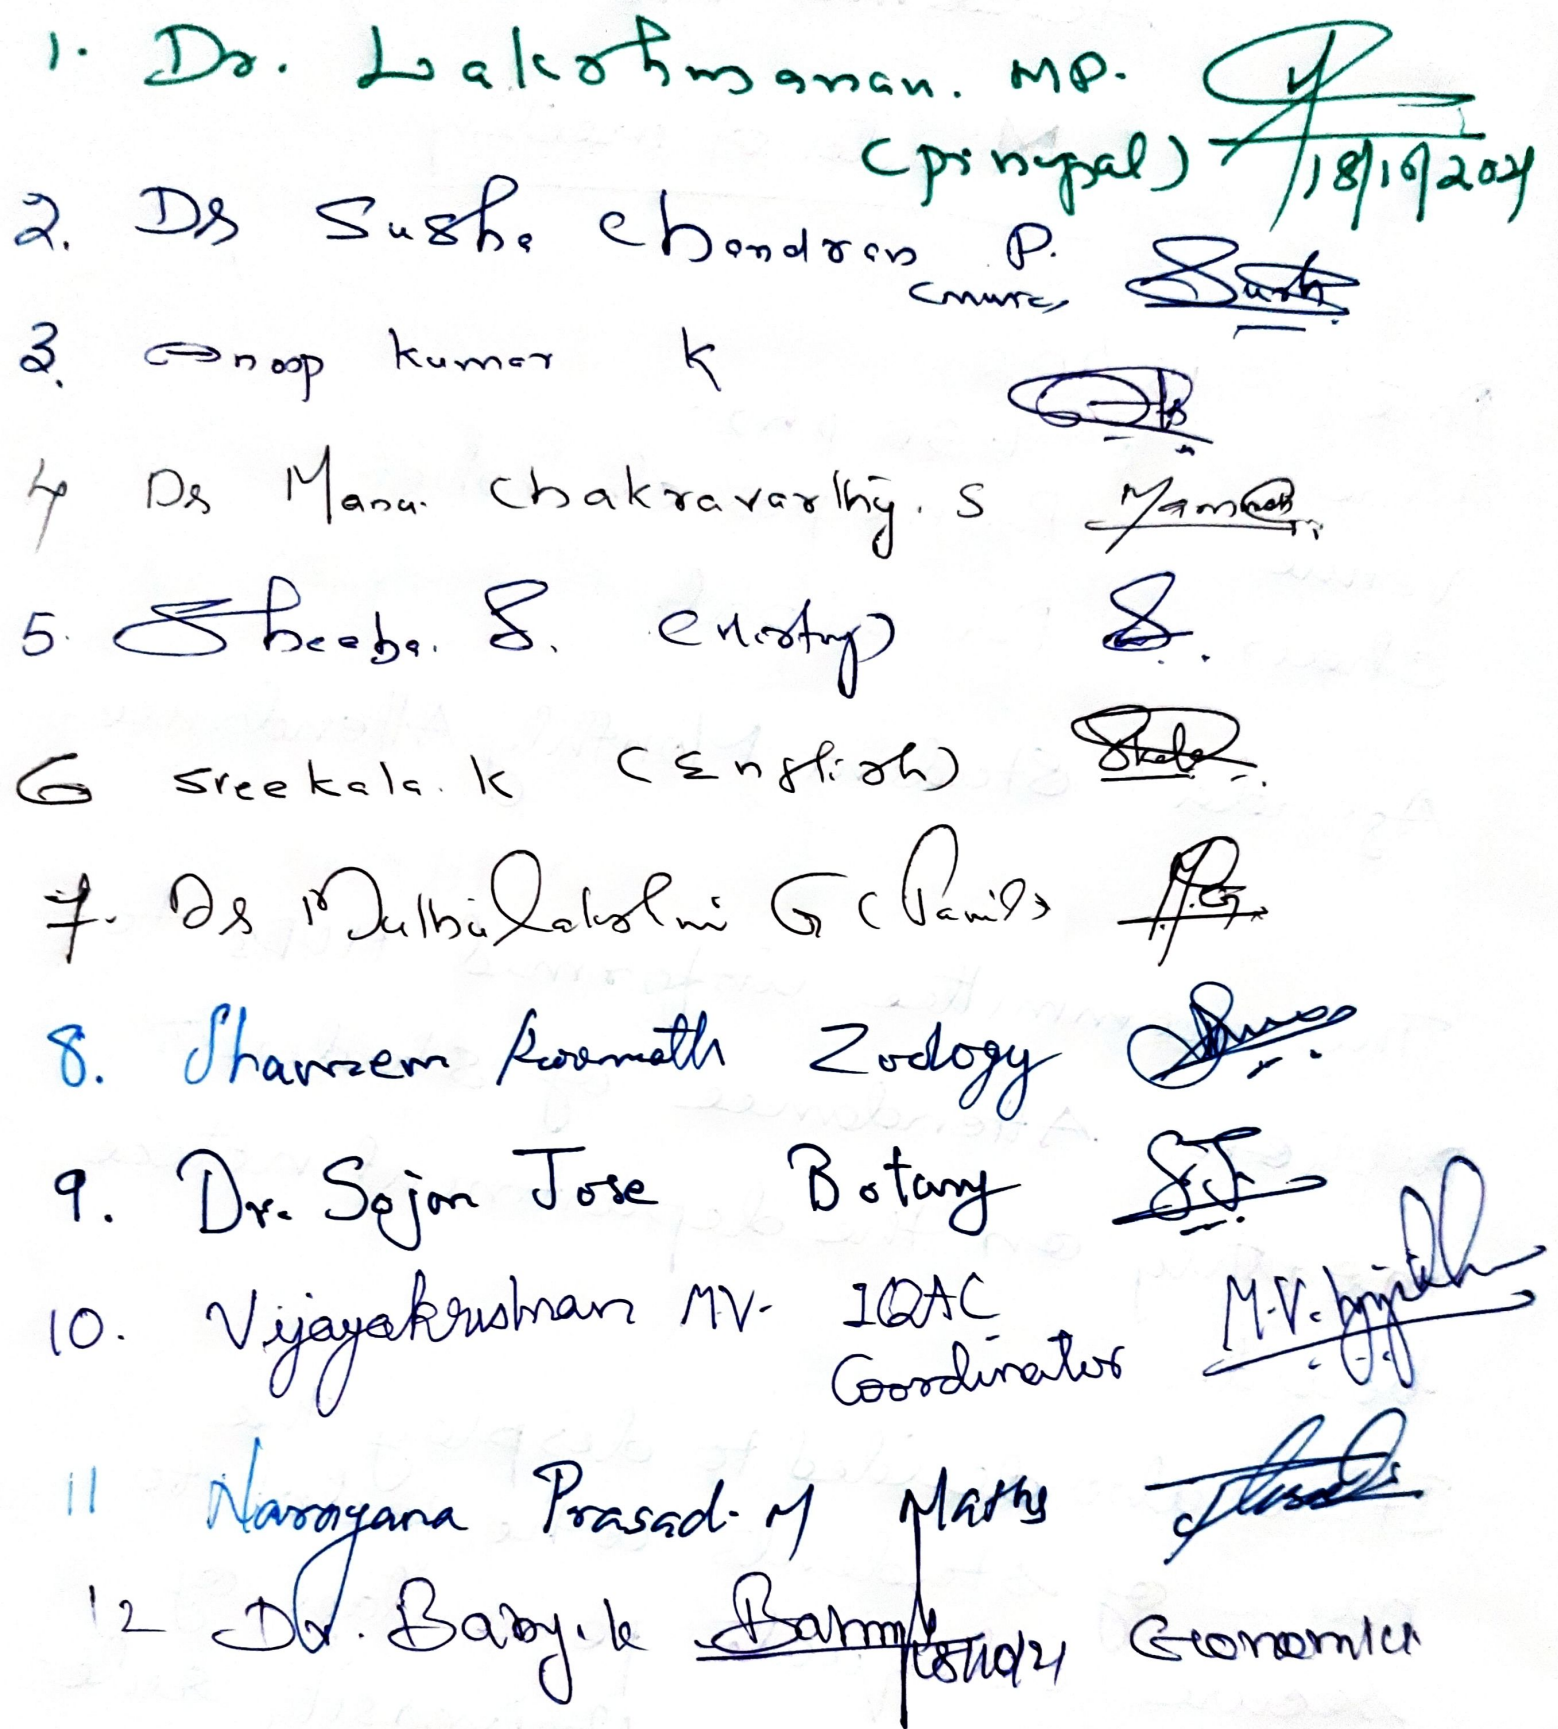 1. Dr. Lakshmanan. MP.
(principal) 18/10/2021
2. Dr Susha Chandran P.
3. Anoop kumar K
4 Dr Manu Chakravarthy. S
5. Sheeba. S.
6 Sreekala. K (English)
7. Dr Muthulakshmi G (Tamil)
8. Shameem Zoology
9. Dr. Sojan Jose Botany S.J
10. Vijayakrishnan MV. IQAC
Coordinator
11 Narayana Prasad. M Maths
12 Dr. Baby. k 18/10/21 Economics